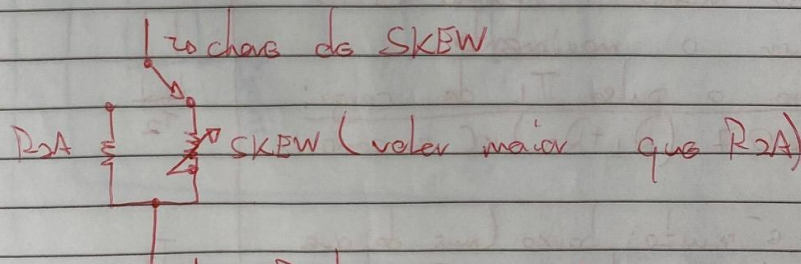 chave de SKEW
R2A SKEW (valor maior que R2A)